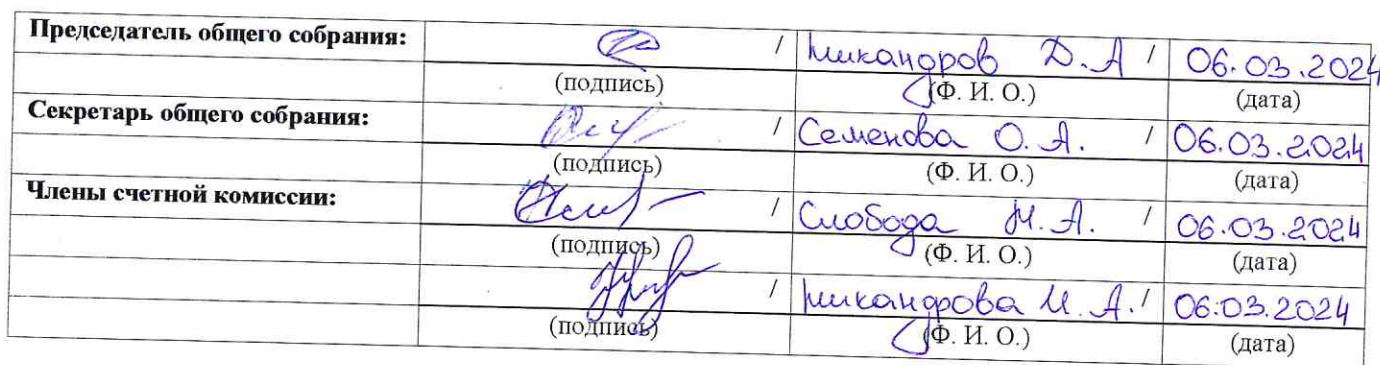 Председатель общего собрания: / Никандров Д.А / 06.03.2024
(подпись) (Ф. И. О.) (дата)
Секретарь общего собрания: / Семенова О.А. / 06.03.2024
(подпись) (Ф. И. О.) (дата)
Члены счетной комиссии: / Слобода Н.А. / 06.03.2024
(подпись) (Ф. И. О.) (дата)
/ Никандрова И.А. / 06.03.2024
(подпись) (Ф. И. О.) (дата)